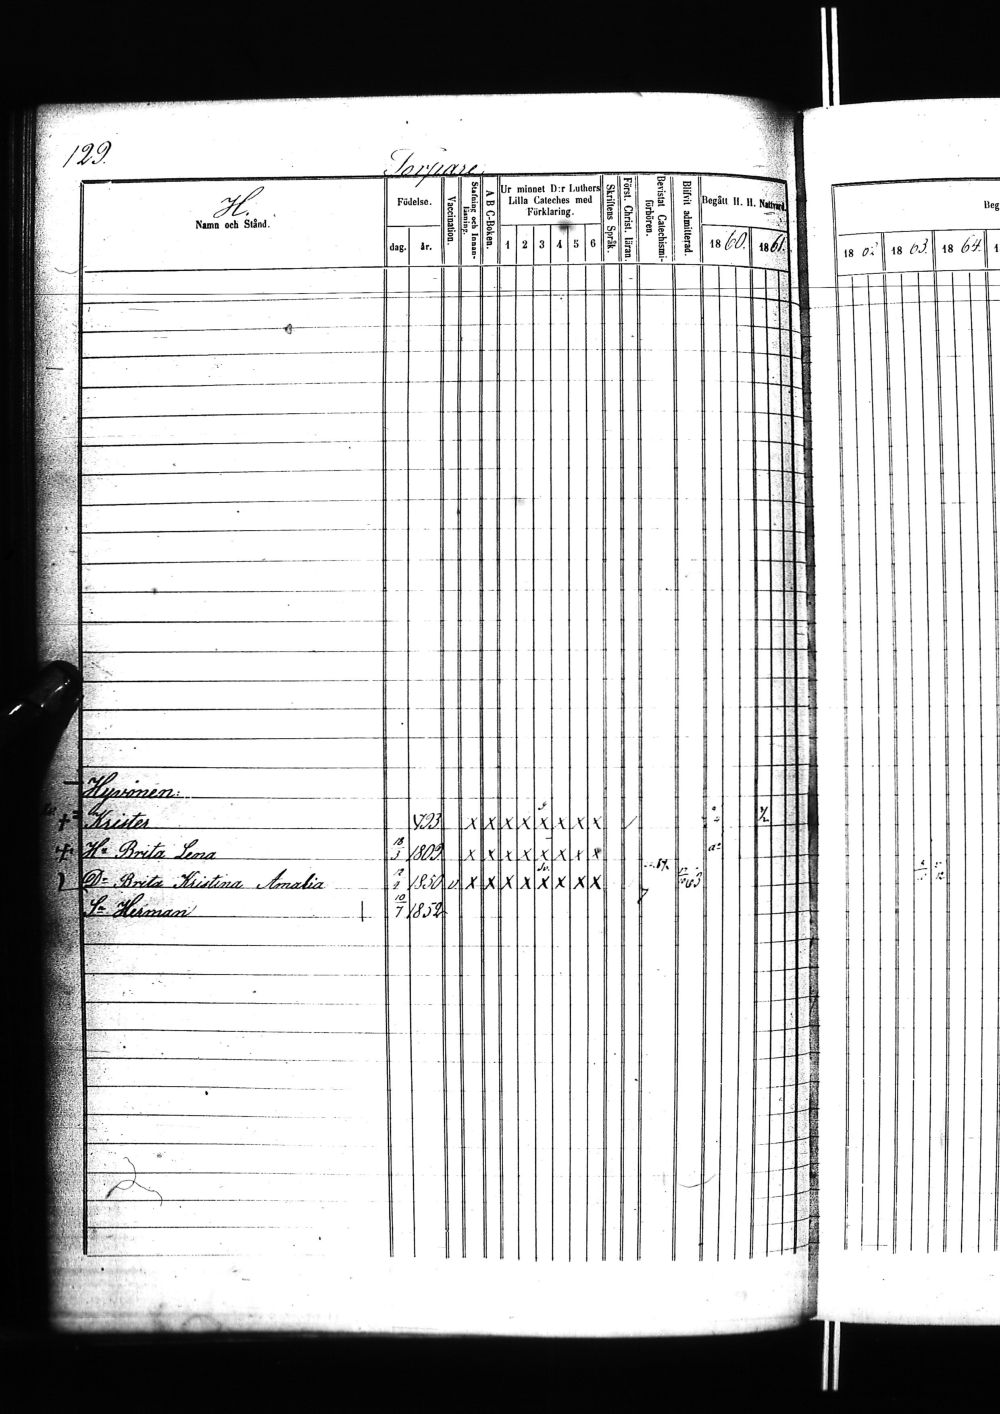 129.
Torpare
H.
Namn och Stånd.
Födelse.
dag. år.
Vaccination.
Stafning och Innan-läsning.
A B C-Boken.
Ur minnet D:r Luthers
Lilla Cateches med
Förklaring.
1 2 3 4 5 6
Skriftens Språk.
Först. Christ. läran.
Bevistat Catechismi-förhören.
Blifvit admitterad.
Begått H. H. Nattvard.
1860. 1861.
Beg
1862 1863. 1864. 1
Hyvönen:
Krister 793 x x x x x x x x
Hu Brita Lena 18/3 1809 x x x x x x x x
Dr Brita Kristina Amalia 1850 v x x x x x x x x
Sn Herman 10/7 1852